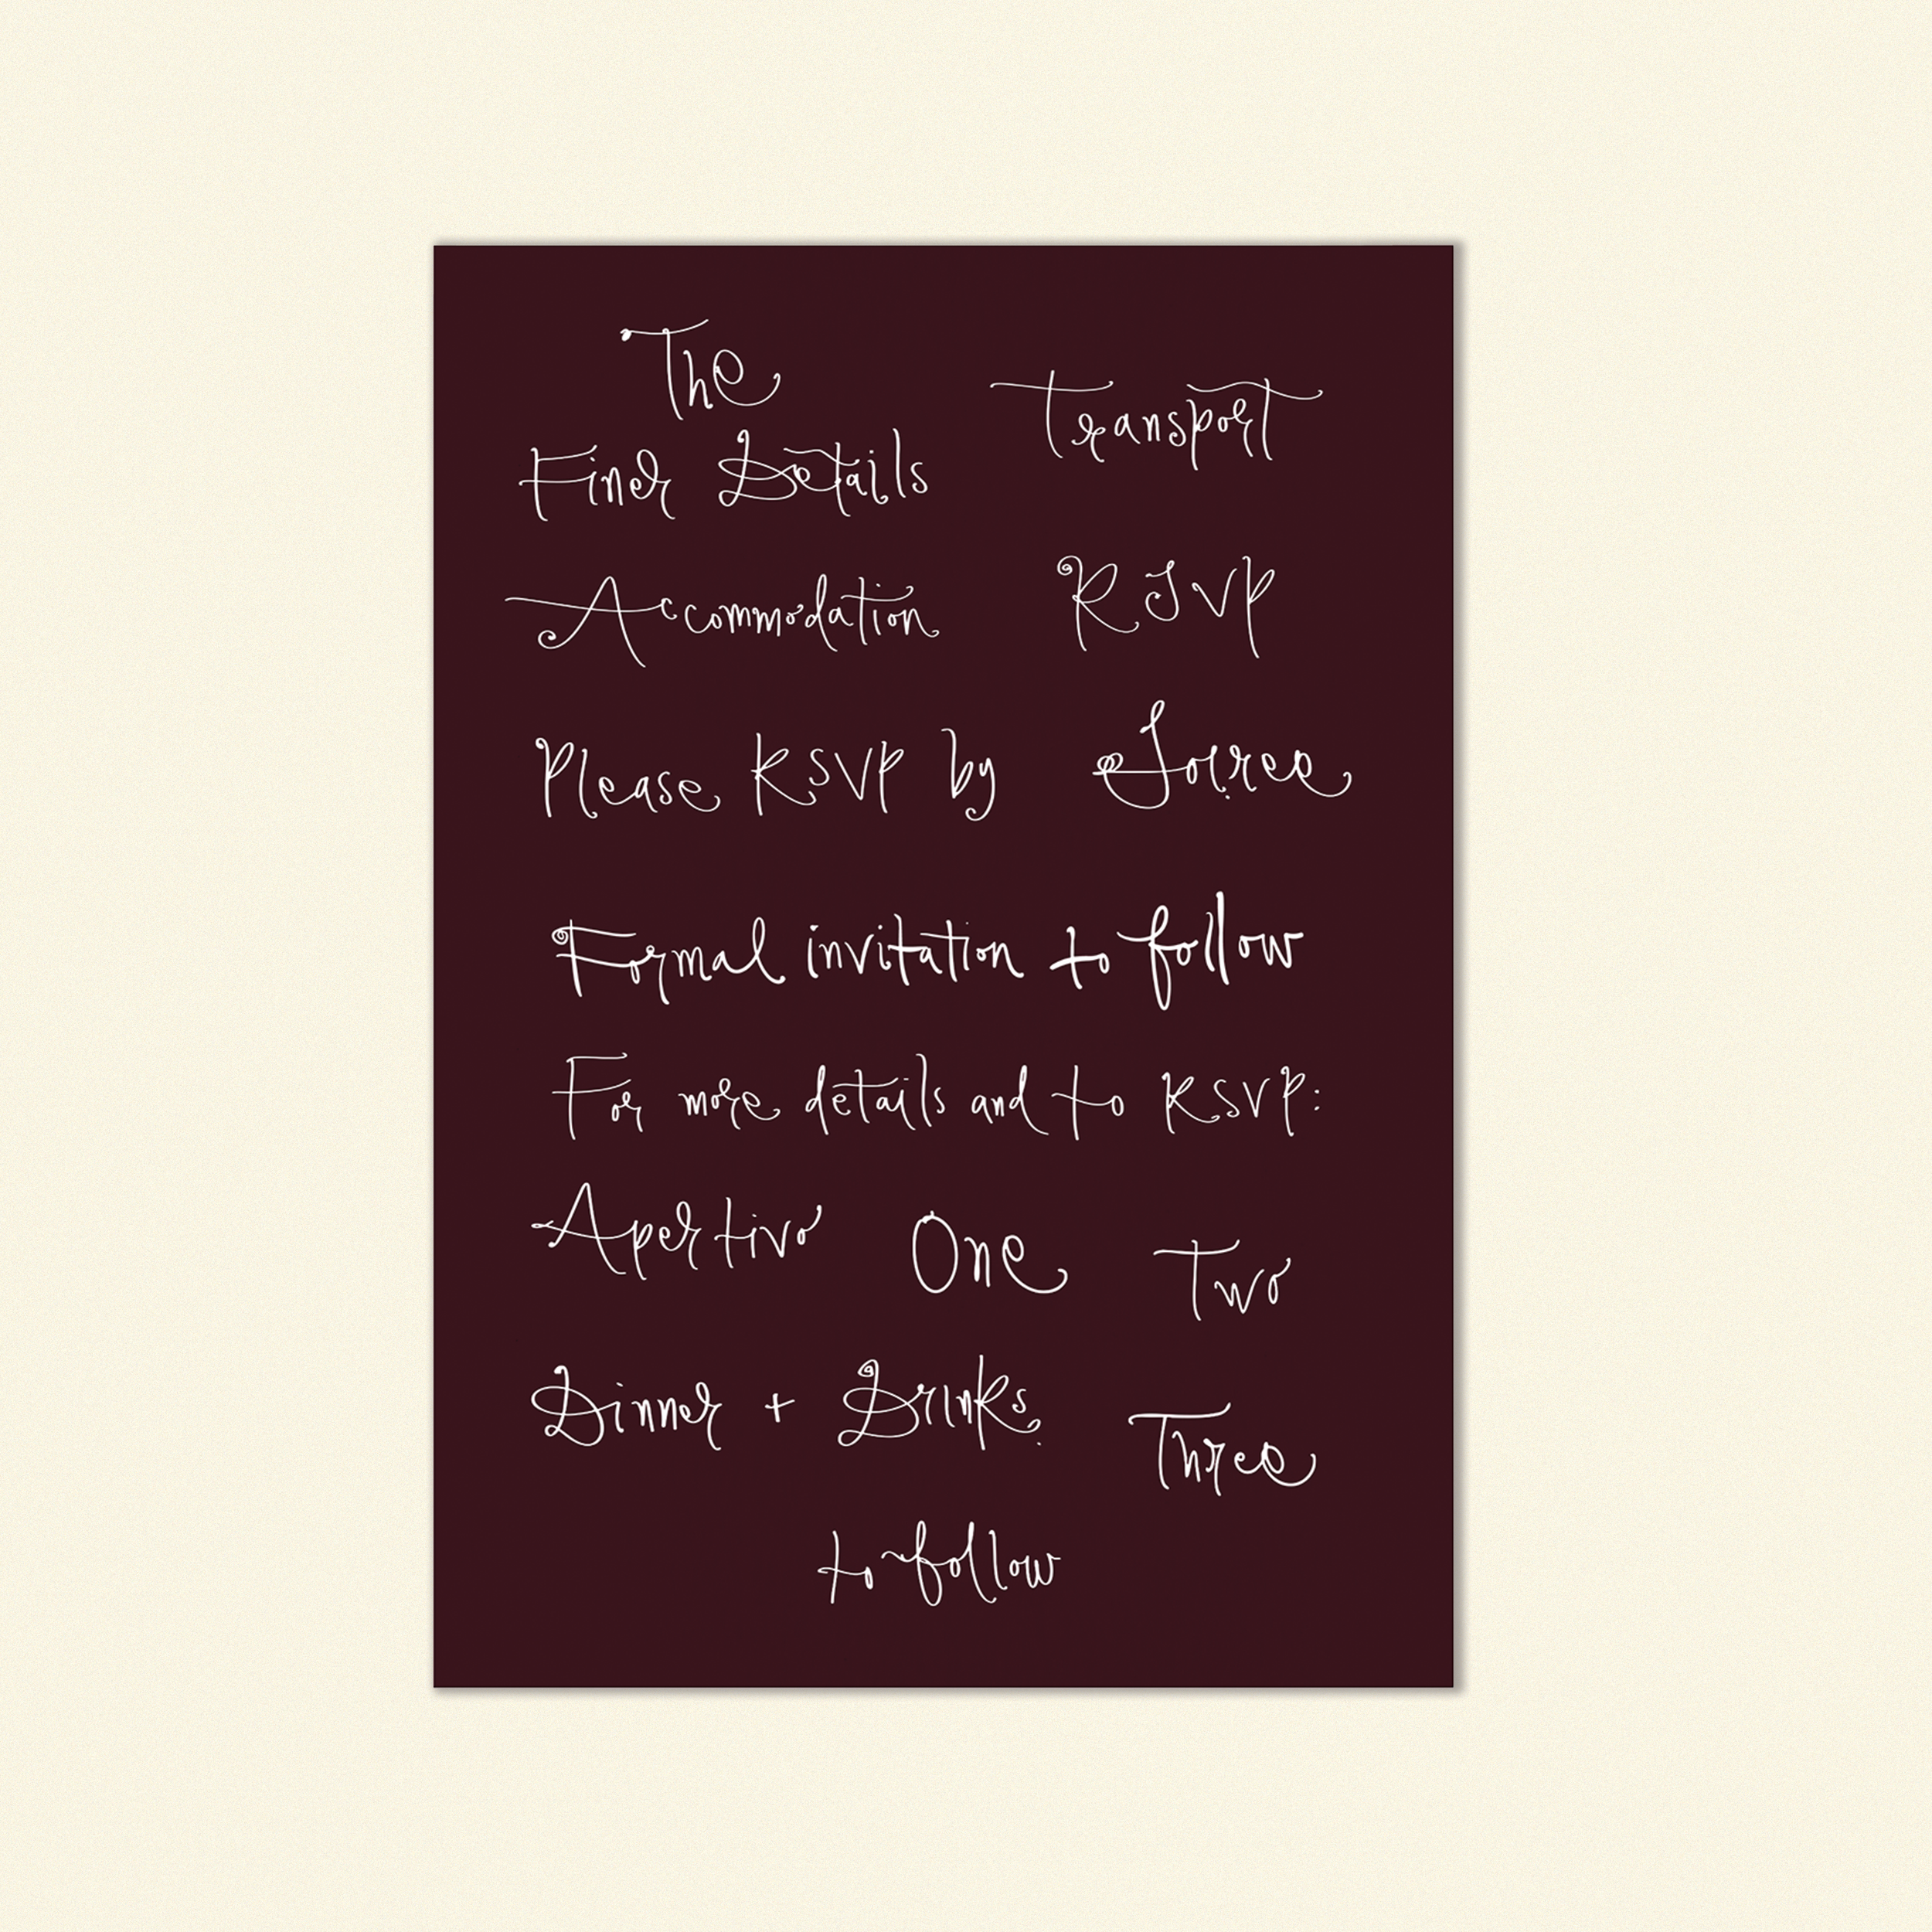 The
Finer Details
Transport
Accommodation
RSVP
Please RSVP by
Soiree
Formal invitation to follow
For more details and to RSVP:
Aperitivo
One
Two
Dinner + Drinks
Three
to follow